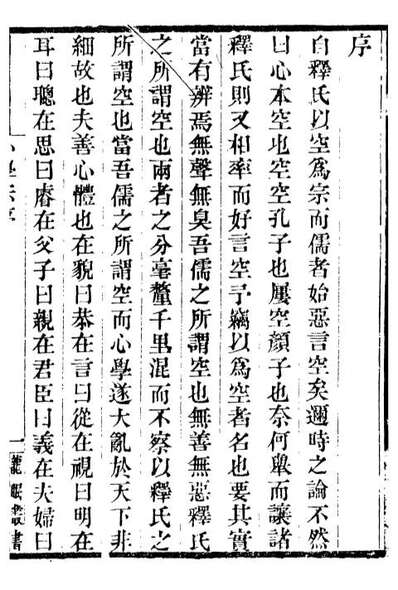 序
自釋氏以空爲宗而儒者始惡言空矣邇時之論不然
曰心本空也空空孔子也屢空顏子也奈何舉而讓諸
釋氏則又相率而好言空予竊以爲空者名也要其實
當有辨焉無聲無臭吾儒之所謂空也無善無惡釋氏
之所謂空也兩者之分毫釐千里混而不察以釋氏之
所謂空也當吾儒之所謂空而心學遂大亂於天下非
細故也夫善心體也在貌曰恭在言曰從在視曰明在
耳曰聰在思曰睿在父子曰親在君臣曰義在夫婦曰
一
叢書